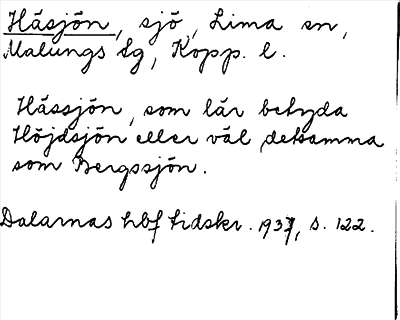 Häsjön, sjö, Lima sn,
Malungs tg, Kopp. l.
Hässjön, som lär betyda
Höjdsjön eller väl detsamma
som Bergssjön.
Dalarnas hbf tidskr. 1937, s. 122.